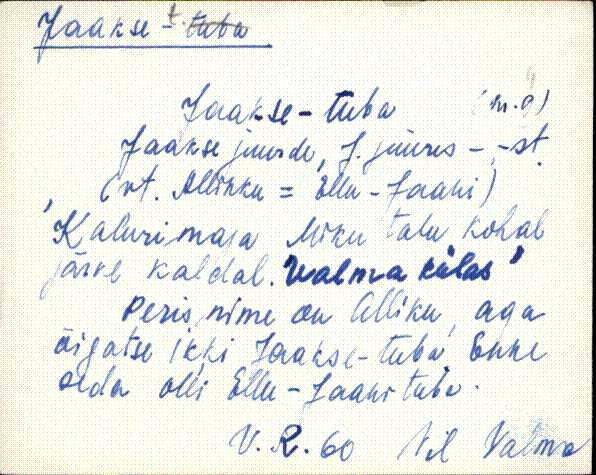 Jaakse-t. tuba
Jaakse-tuba (m. g)
Jaakse juurde, J. juures - , -st.
(vt. Alliku = Ellu-Jaani)
'Kalurimaja Miku talu kohal
järve kaldal. Valma külas'
Peris nime on Alliku, aga
õigatse ikki Jaakse-tuba. Enne
selda olli Ellu-Jaani tuba.
V. R. 60 Vil Valma